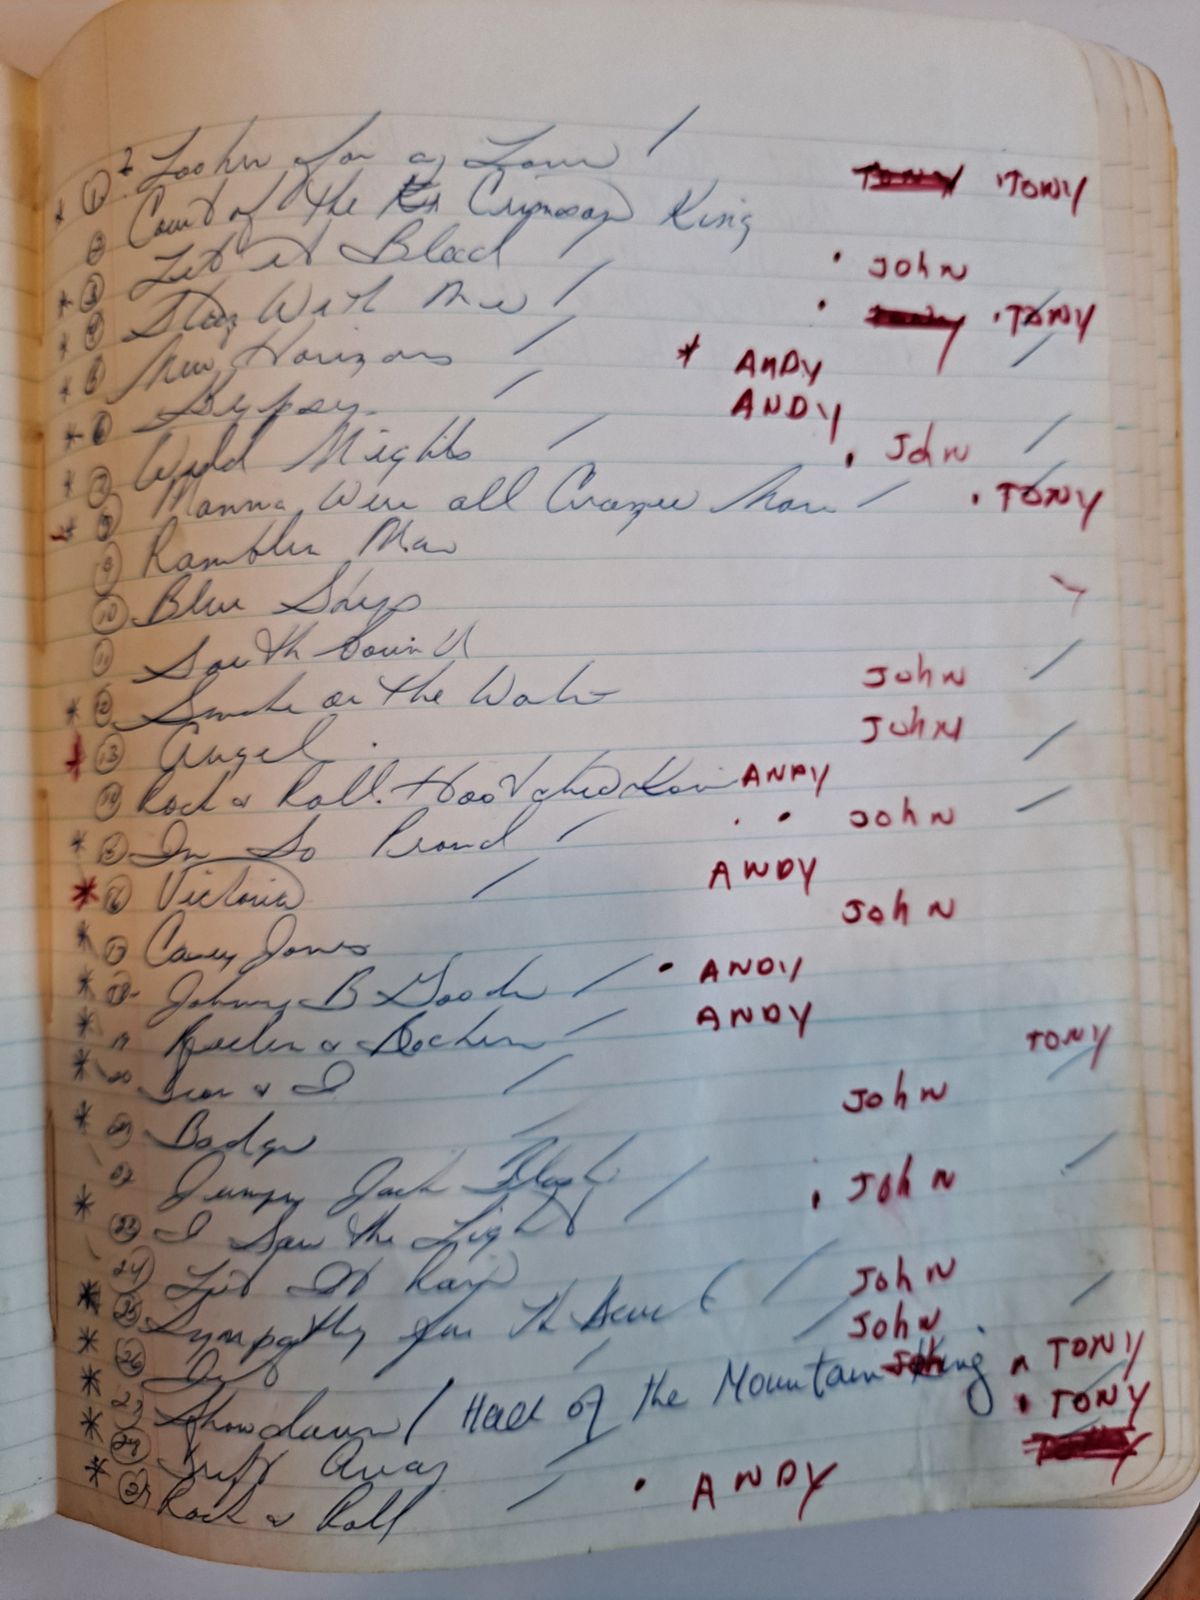 * ① Lookin for a Love / TONY 'TONY
② Court of the Crimson King
* ③ Let it Bleed • John
* ④ Stay With Me / • TONY • TONY
* ⑤ New Horizons / * ANDY /
* ⑥ Gypsy / ANDY
* ⑦ Wild Nights / • John /
* ⑧ Mamma Were all Crazee Now / • TONY
⑨ Ramblin Man
⑩ Blue Skys
⑪ South bound
* ⑫ Smoke on the Water John /
* ⑬ Angel John
⑭ Rock & Roll Hootchie Koo ANDY /
* ⑮ Im So Proud / • • John /
* ⑯ Victoria / ANDY
* ⑰ Casey Jones John
* ⑱ Johnny B Goode / • ANDY
* 19 Reelin & Rockin / ANDY
* 20 & I / TONY /
* ㉑ Badge / John
22 Jumpin Jack Flash /
* ㉓ I Saw the Light / • John
㉔ Let It Rain / John
* ㉕ Sympathy for the Devil / John /
* ㉖ / TONY
* 27 Showdown / Hall of the Mountain King • TONY
* ㉘ Drift Away /
* ㉙ Rock & Roll / • ANDY